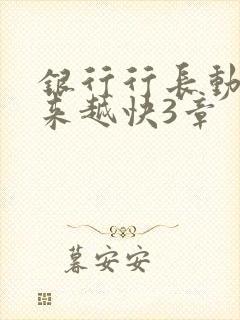 銀行行長動
来越快3章
暮安安